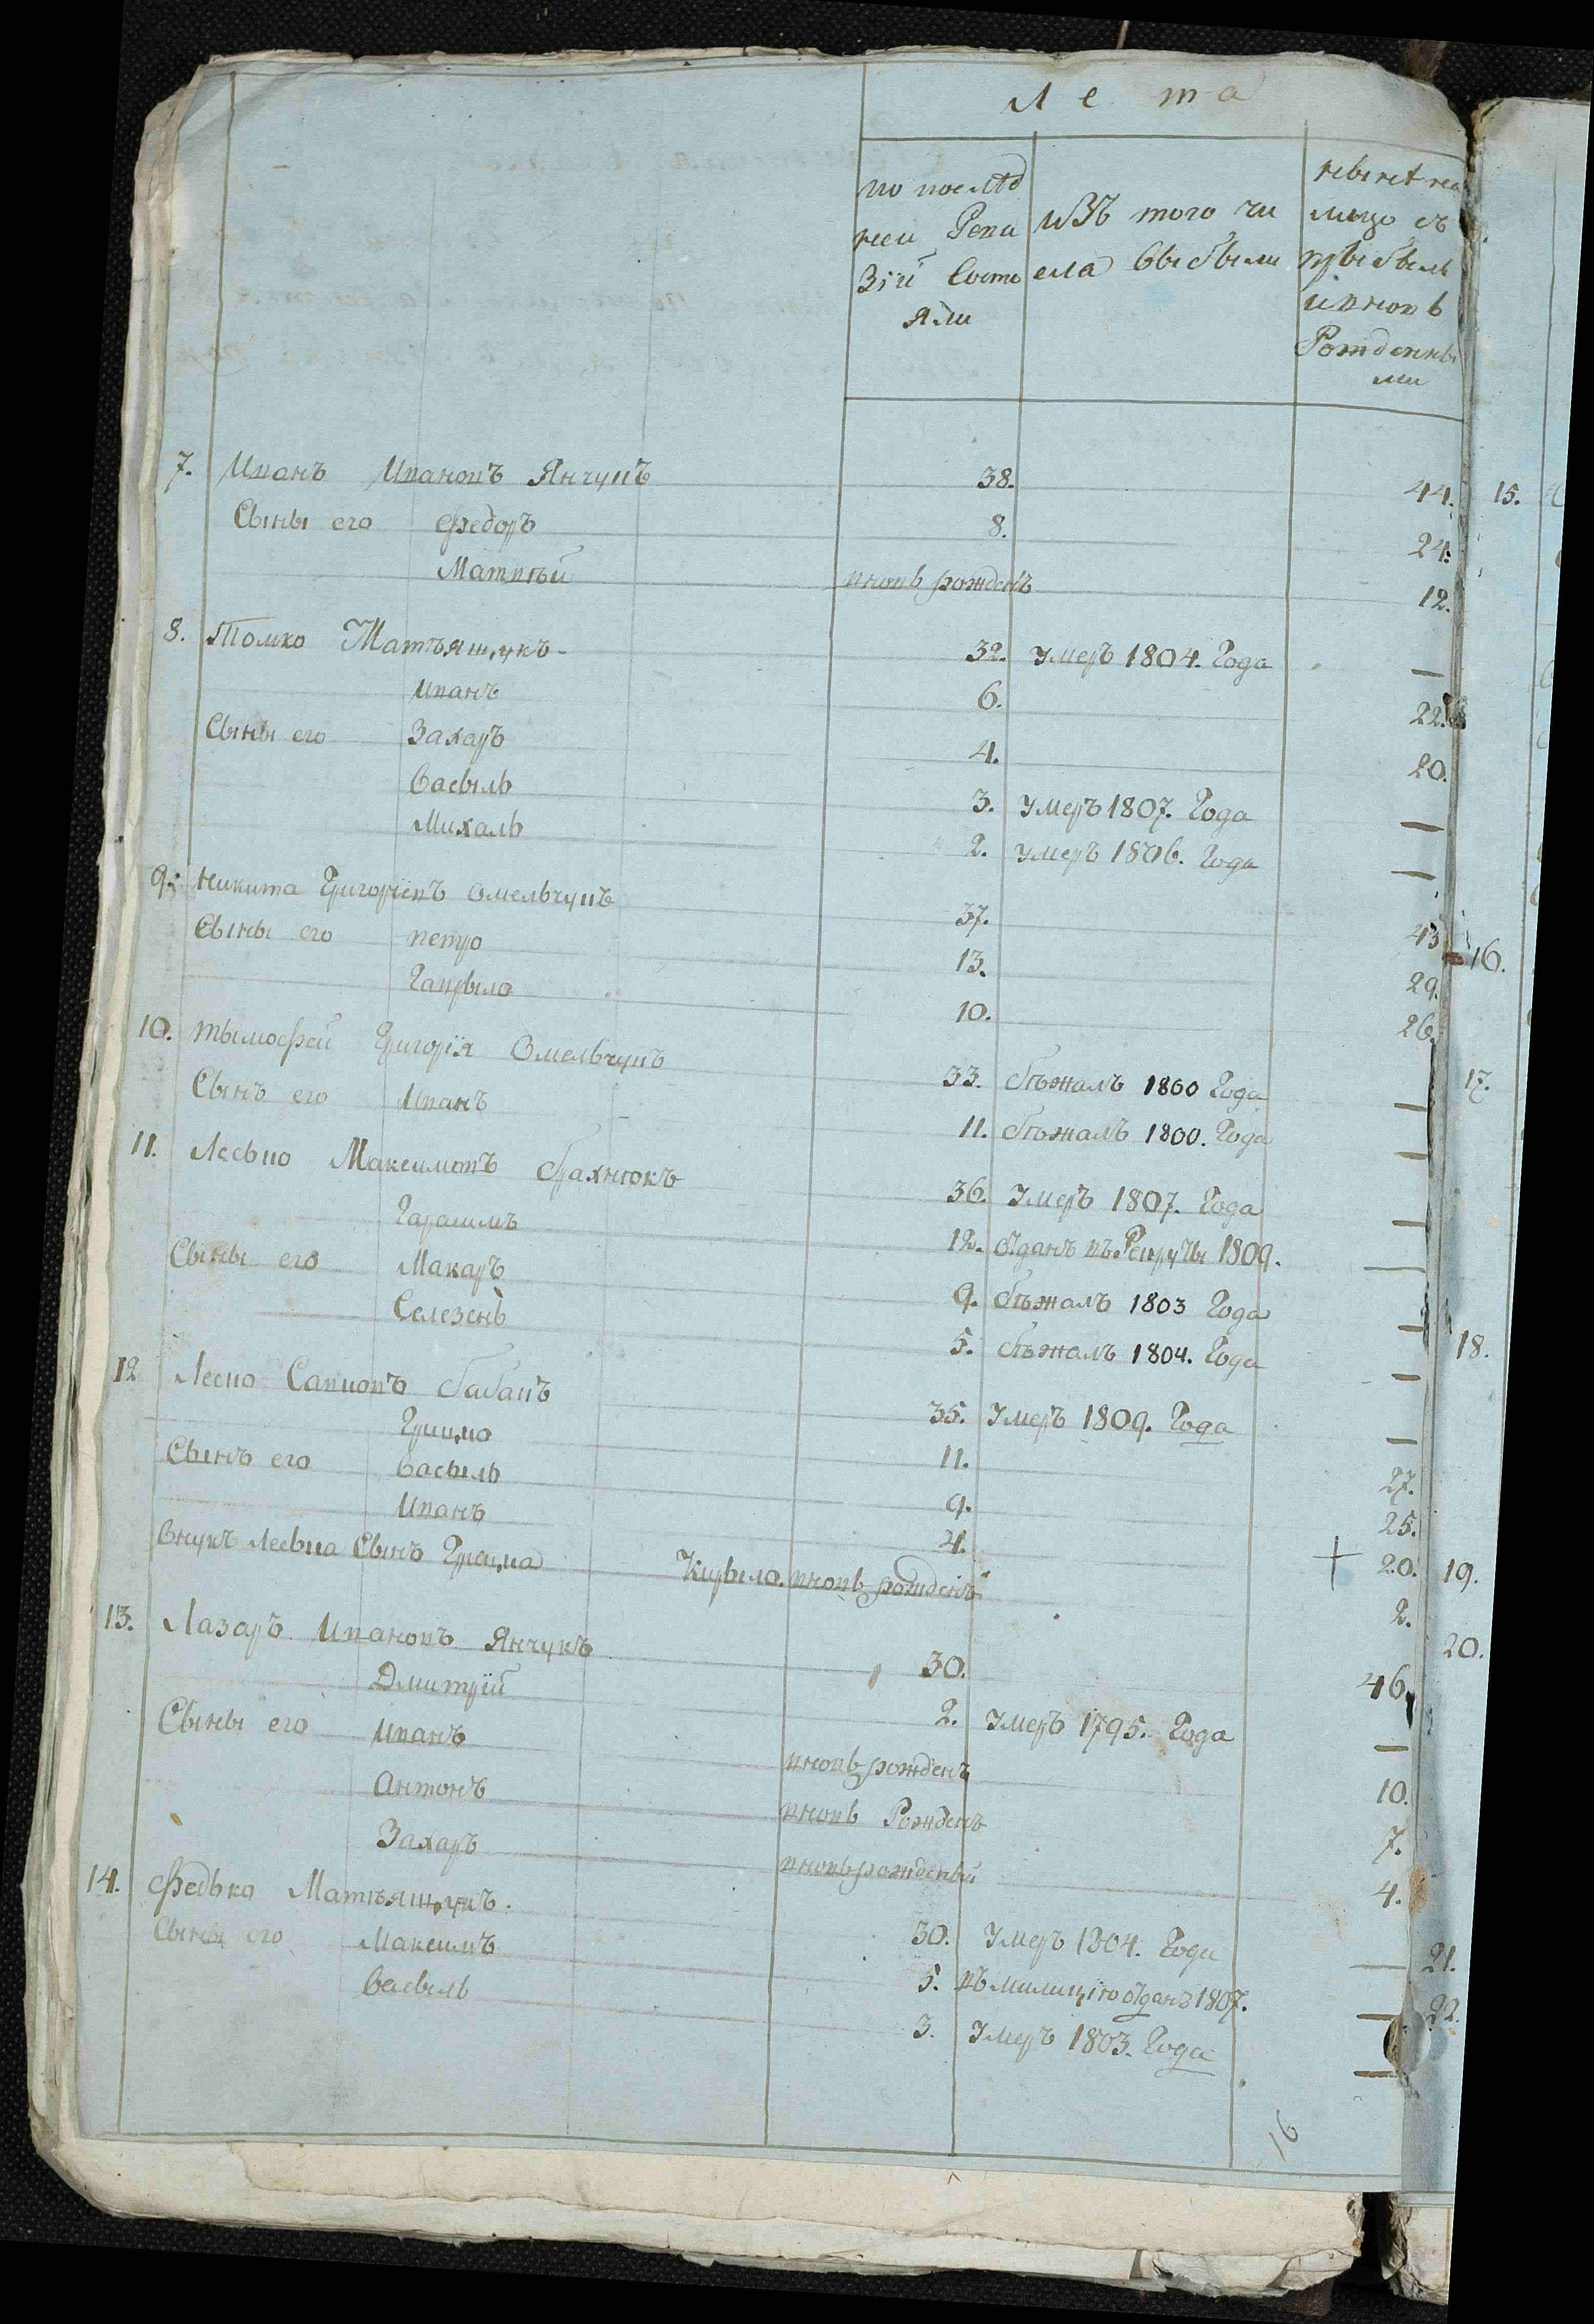 Лета
по послѣд
ней Реви
зіи Состо
яли
изъ того чи
сла выбыли
нынѣ на
лицо съ
прыбыль
и вновь
Рожденны
ми
7. Иванъ Ивановъ Янчукъ 38. 44. 15.
Сыны его Федоръ 8. 24.
Матвѣй вновь рожденъ 12.
8. Томко Матѣящукъ - 32. Умеръ 1804. Года —
Иванъ 6. 22.
Сыны его Захаръ 4. 20.
Васыль 3. Умеръ 1807. Года —
Михаль 2. Умеръ 1806. Года —
9. Никита Григоріевъ Омельчукъ 37. 43
Сыны его Петро 13. 29. 16.
Гаврыло 10. 26.
10. Тымофей Григорія Омельчукъ 33. бѣжалъ 1800 Года — 17.
Сынъ его Иванъ 11. бѣжалъ 1800. Года —
11. Лесько Максимовъ Брахнюкъ 36. Умеръ 1807. Года —
Гарасимъ 12. отданъ въ Рекруты 1809. —
Сыны его Макаръ 9. бѣжалъ 1803 Года —
Селезенъ 5. бѣжалъ 1804. Года — 18.
12 Леско Савковъ Бабакъ 35. Умеръ 1809. Года —
Грицко 11. 27.
Сынъ его Васыль 9. 25.
Иванъ 4. 20. 19.
Внукъ Леська Сынъ Грицка Кирыло. вновь рожденъ 2.
13. Лазаръ Ивановъ Янчукъ 30. 46. 20.
Дмитрій 2. Умеръ 1795. Года —
Сыны его Иванъ вновь рожденъ 10.
Антонъ вновь Рожденъ 7.
Захаръ вновь рожденый 4.
14. Федько Матѣящукъ. 30. Умеръ 1804. Года — 21.
Сыны его Максимъ 5. въ милицію отданъ 1807. — 22.
Васыль 3. Умеръ 1803. Года —
16